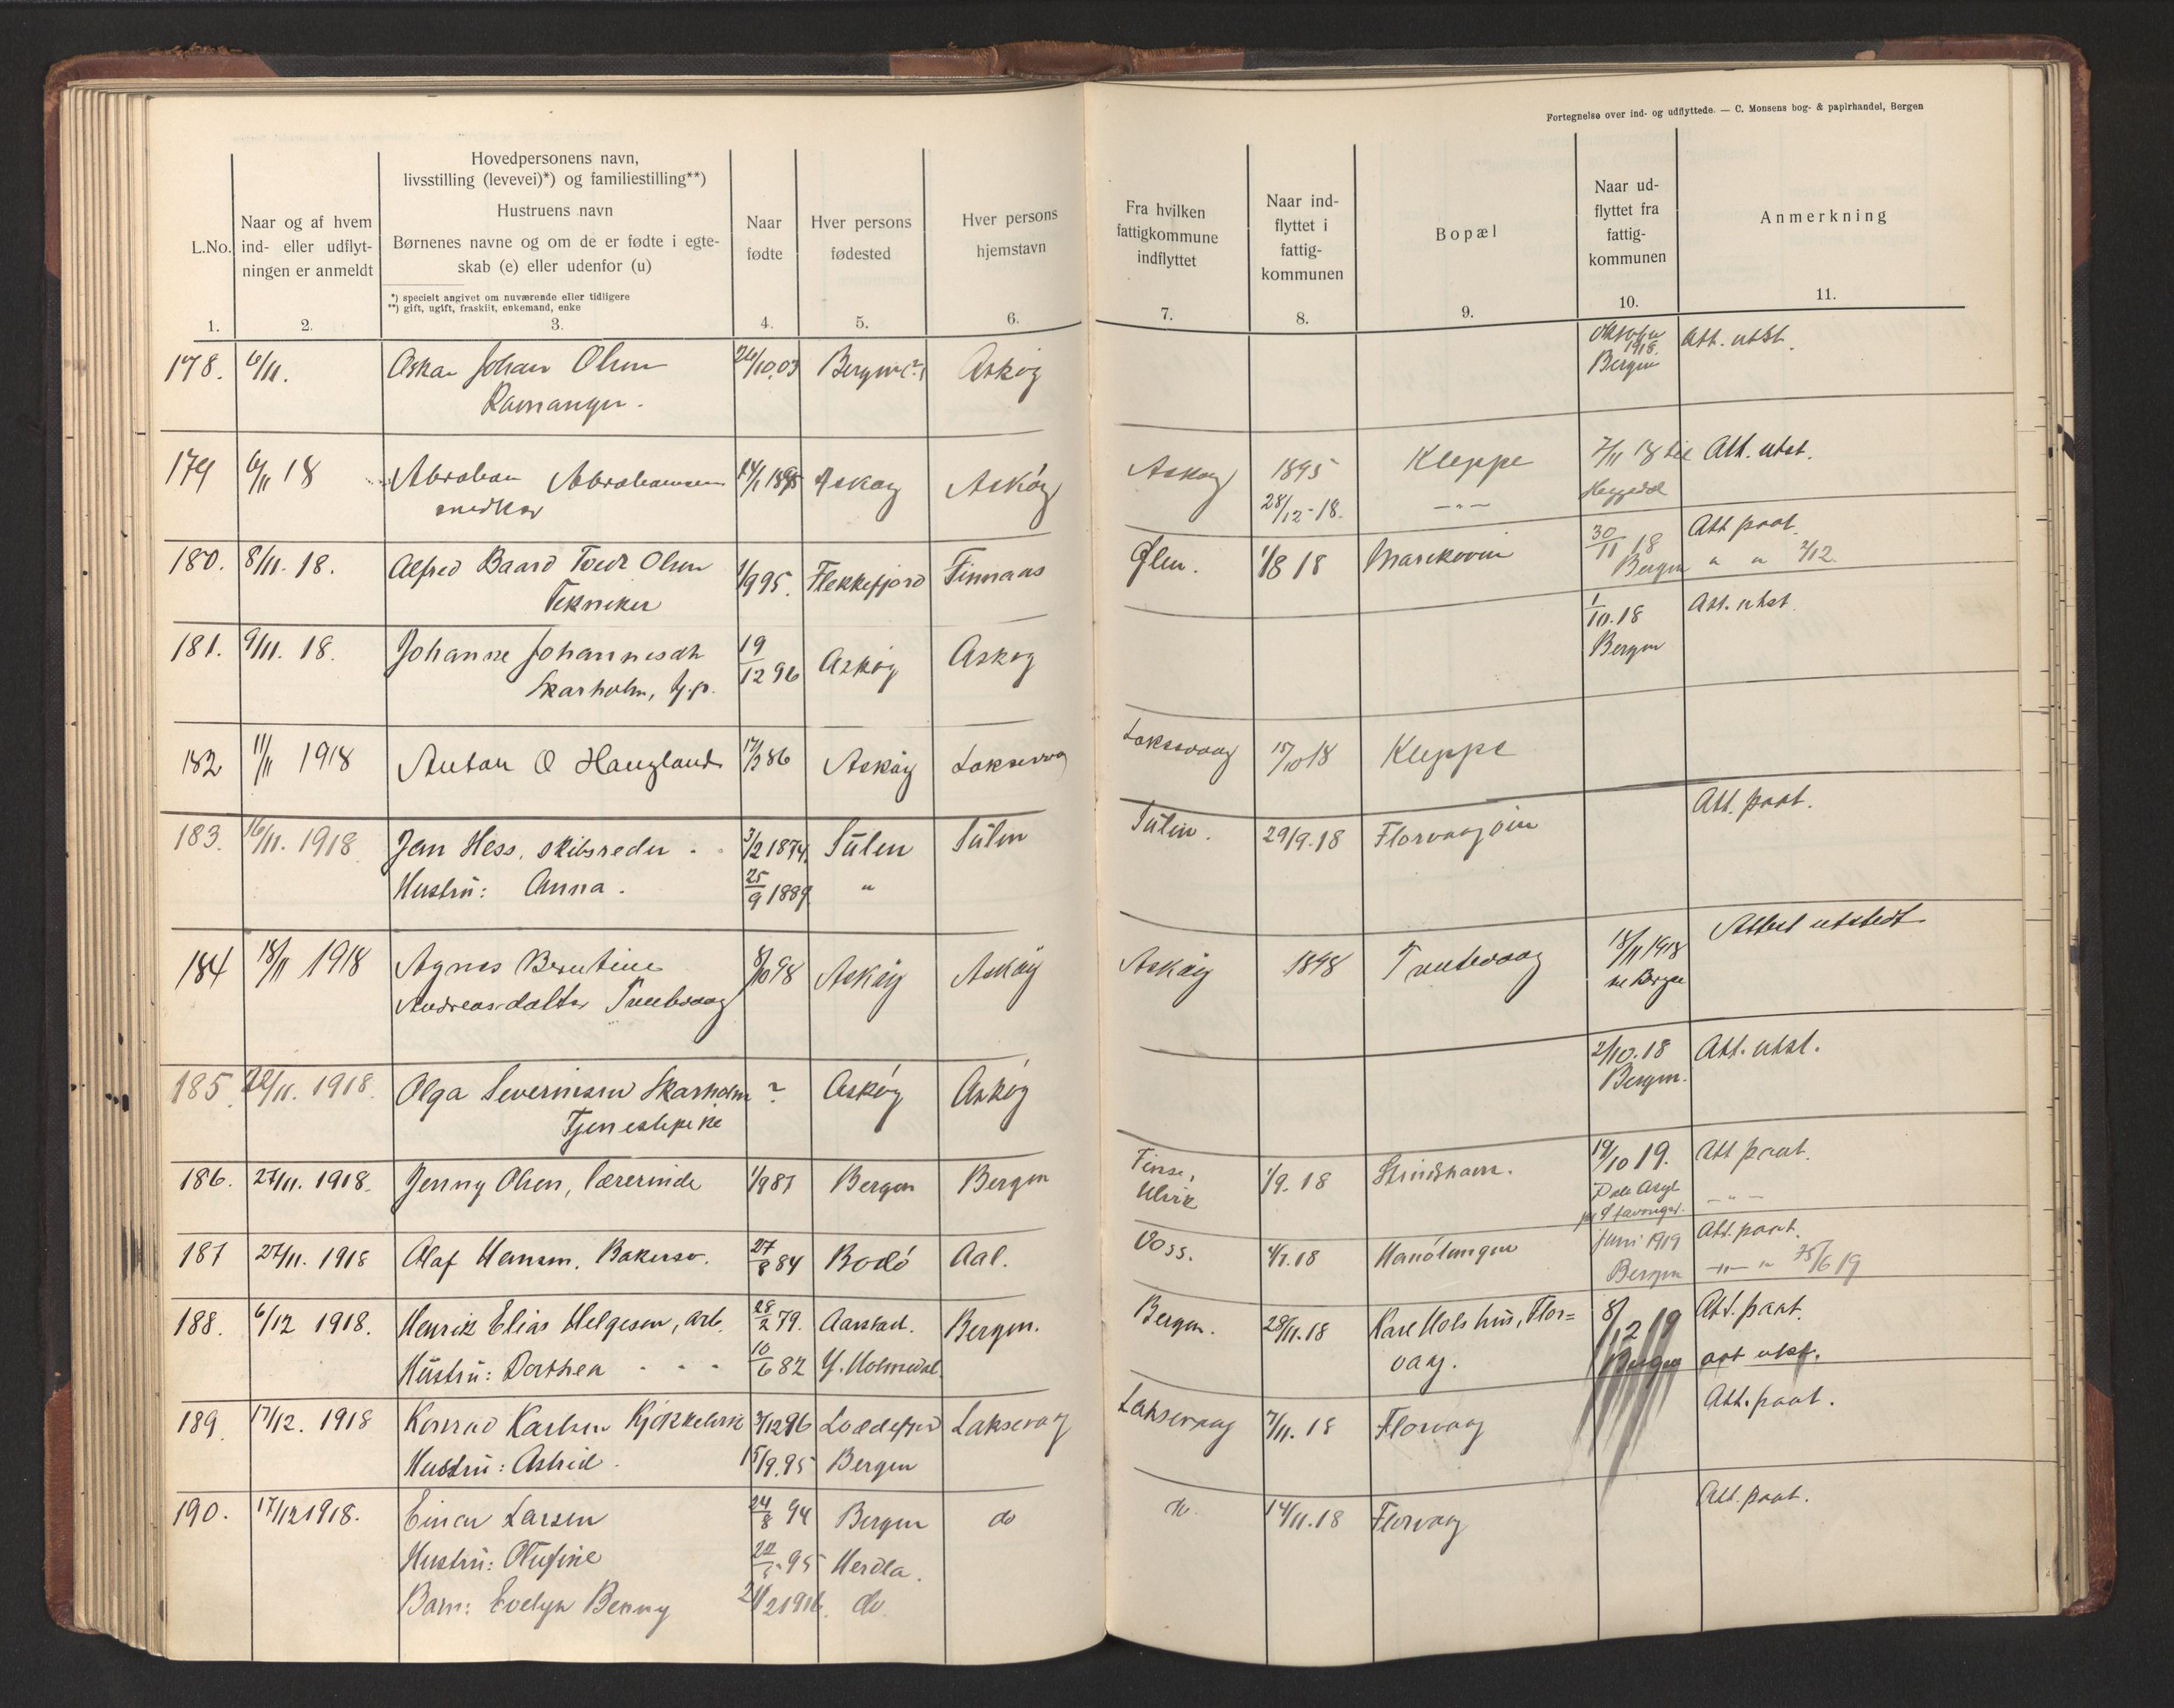 Fortegnelse over ind- og udflyttede. — C. Monsens bog- & papirhandel, Bergen
L.No.
1.
Naar og af hvem
ind- eller udflyt-
ningen er anmeldt
2.
Hovedpersonens navn,
livsstilling (levevei)*) og familiestilling**)
Hustruens navn
Børnenes navne og om de er fødte i egte-
skab (e) eller udenfor (u)
*) specielt angivet om nuværende eller tidligere
**) gift, ugift, fraskilt, enkemand, enke
3.
Naar
fødte
4.
Hver persons
fødested
5.
Hver persons
hjemstavn
6.
Fra hvilken
fattigkommune
indflyttet
7.
Naar ind-
flyttet i
fattig-
kommunen
8.
Bopæl
9.
Naar ud-
flyttet fra
fattig-
kommunen
10.
Anmerkning
11.
178. 6/11. Oskar Johan Olsen 26/10.03 Bergen(?) Askøy oktober 1918. Att. utst.
Ramanger. Bergen
179 6/11 18 Abraham Abrahamsen 14/1 1895 Askøy Askøy Askøy 1895 Kleppe 7/11 18 til Att. utst.
snedker 28/12-18. —"—
180. 8/11. 18. Alfred Baard Tvedt Olsen 1/9 95. Flekkefjord Finnaas Ølen. 1/8 18 Marikoven 30/11 18 Att. paat.
Tekniker Bergen " " 2/12.
181. 9/11. 18. Johanne Johannesdt 19/12 96 Askøy Askøy 1/10.18 Att. utst.
Skarholm, tj.p. Bergen
182 11/11 1918 Anton O Haugland 17/3 86 Askøy Laksevaag Laksevaag 15/10 18 Kleppe
183. 16/11. 1918 Jan Hess, skibsreder 3/2 1874. Sulen Sulen Sulen. 29/9.18 Florvaagøen Att. paat.
Hustru: Anna. 25/9 1889 "
184 18/11 1918 Agnes Berntine 8/10 98 Askøy Askøy Askøy 1898 Tveitevaag 18/11 1918 Attest utstedt
Andreasdatter Tveitevaag til Bergen
185. 20/11. 1918. Olga Severinsen Skarholm ? Askøy Askøy 2/10.18 Att. utst.
Tjenestepike Bergen.
186. 27/11. 1918. Jenny Olsen, lærerinde 1/9 87 Bergen Bergen Finse, 1/9. 18 Strudshavn. 19/10 19. Att paat.
Ulvik Dale Asyl —"—
Stavanger.
187 27/11. 1918 Olaf Hansen. Bakersv. 27/8 84 Bodø Aal. Voss. 4/7.18 Hanøtangen juni 1919 Att. paat.
Bergen —"— " 25/6 19
188. 6/12 1918. Henrik Elias Helgesen, arb. 28/2 79. Aarstad. Bergen. Bergen. 28/11.18 Karl Hols hus, Flor= 8/12 19 Att. paat.
Hustru: Dorthea 10/6 82 Y. Holmedal. vaag. Bergen att utst.
189 17/12. 1918 Konrad Karlsen Kjøkkelvik 3/12 96 Loddefjord Laksevaag Laksevaag 7/11. 18 Florvaag Att. paat.
Hustru: Astrid. 15/9.95 Bergen
190. 17/12 1918. Einar Larsen 24/8 94 Bergen do do 14/11.18 Florvaag Att. paat.
Hustru: Olufine 95 Herdla.
Barn: Evelyn Benny 21/2 1916. do